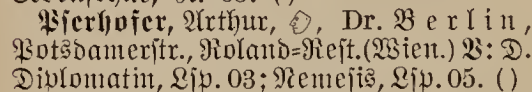 Pserhofer, Arthur, Dr. Berlin,
Potsdamerstr., Roland=Rest.(Wien.) V: D.
Diplomatin, Lsp. 03; Nemesis, Lsp. 05. ()